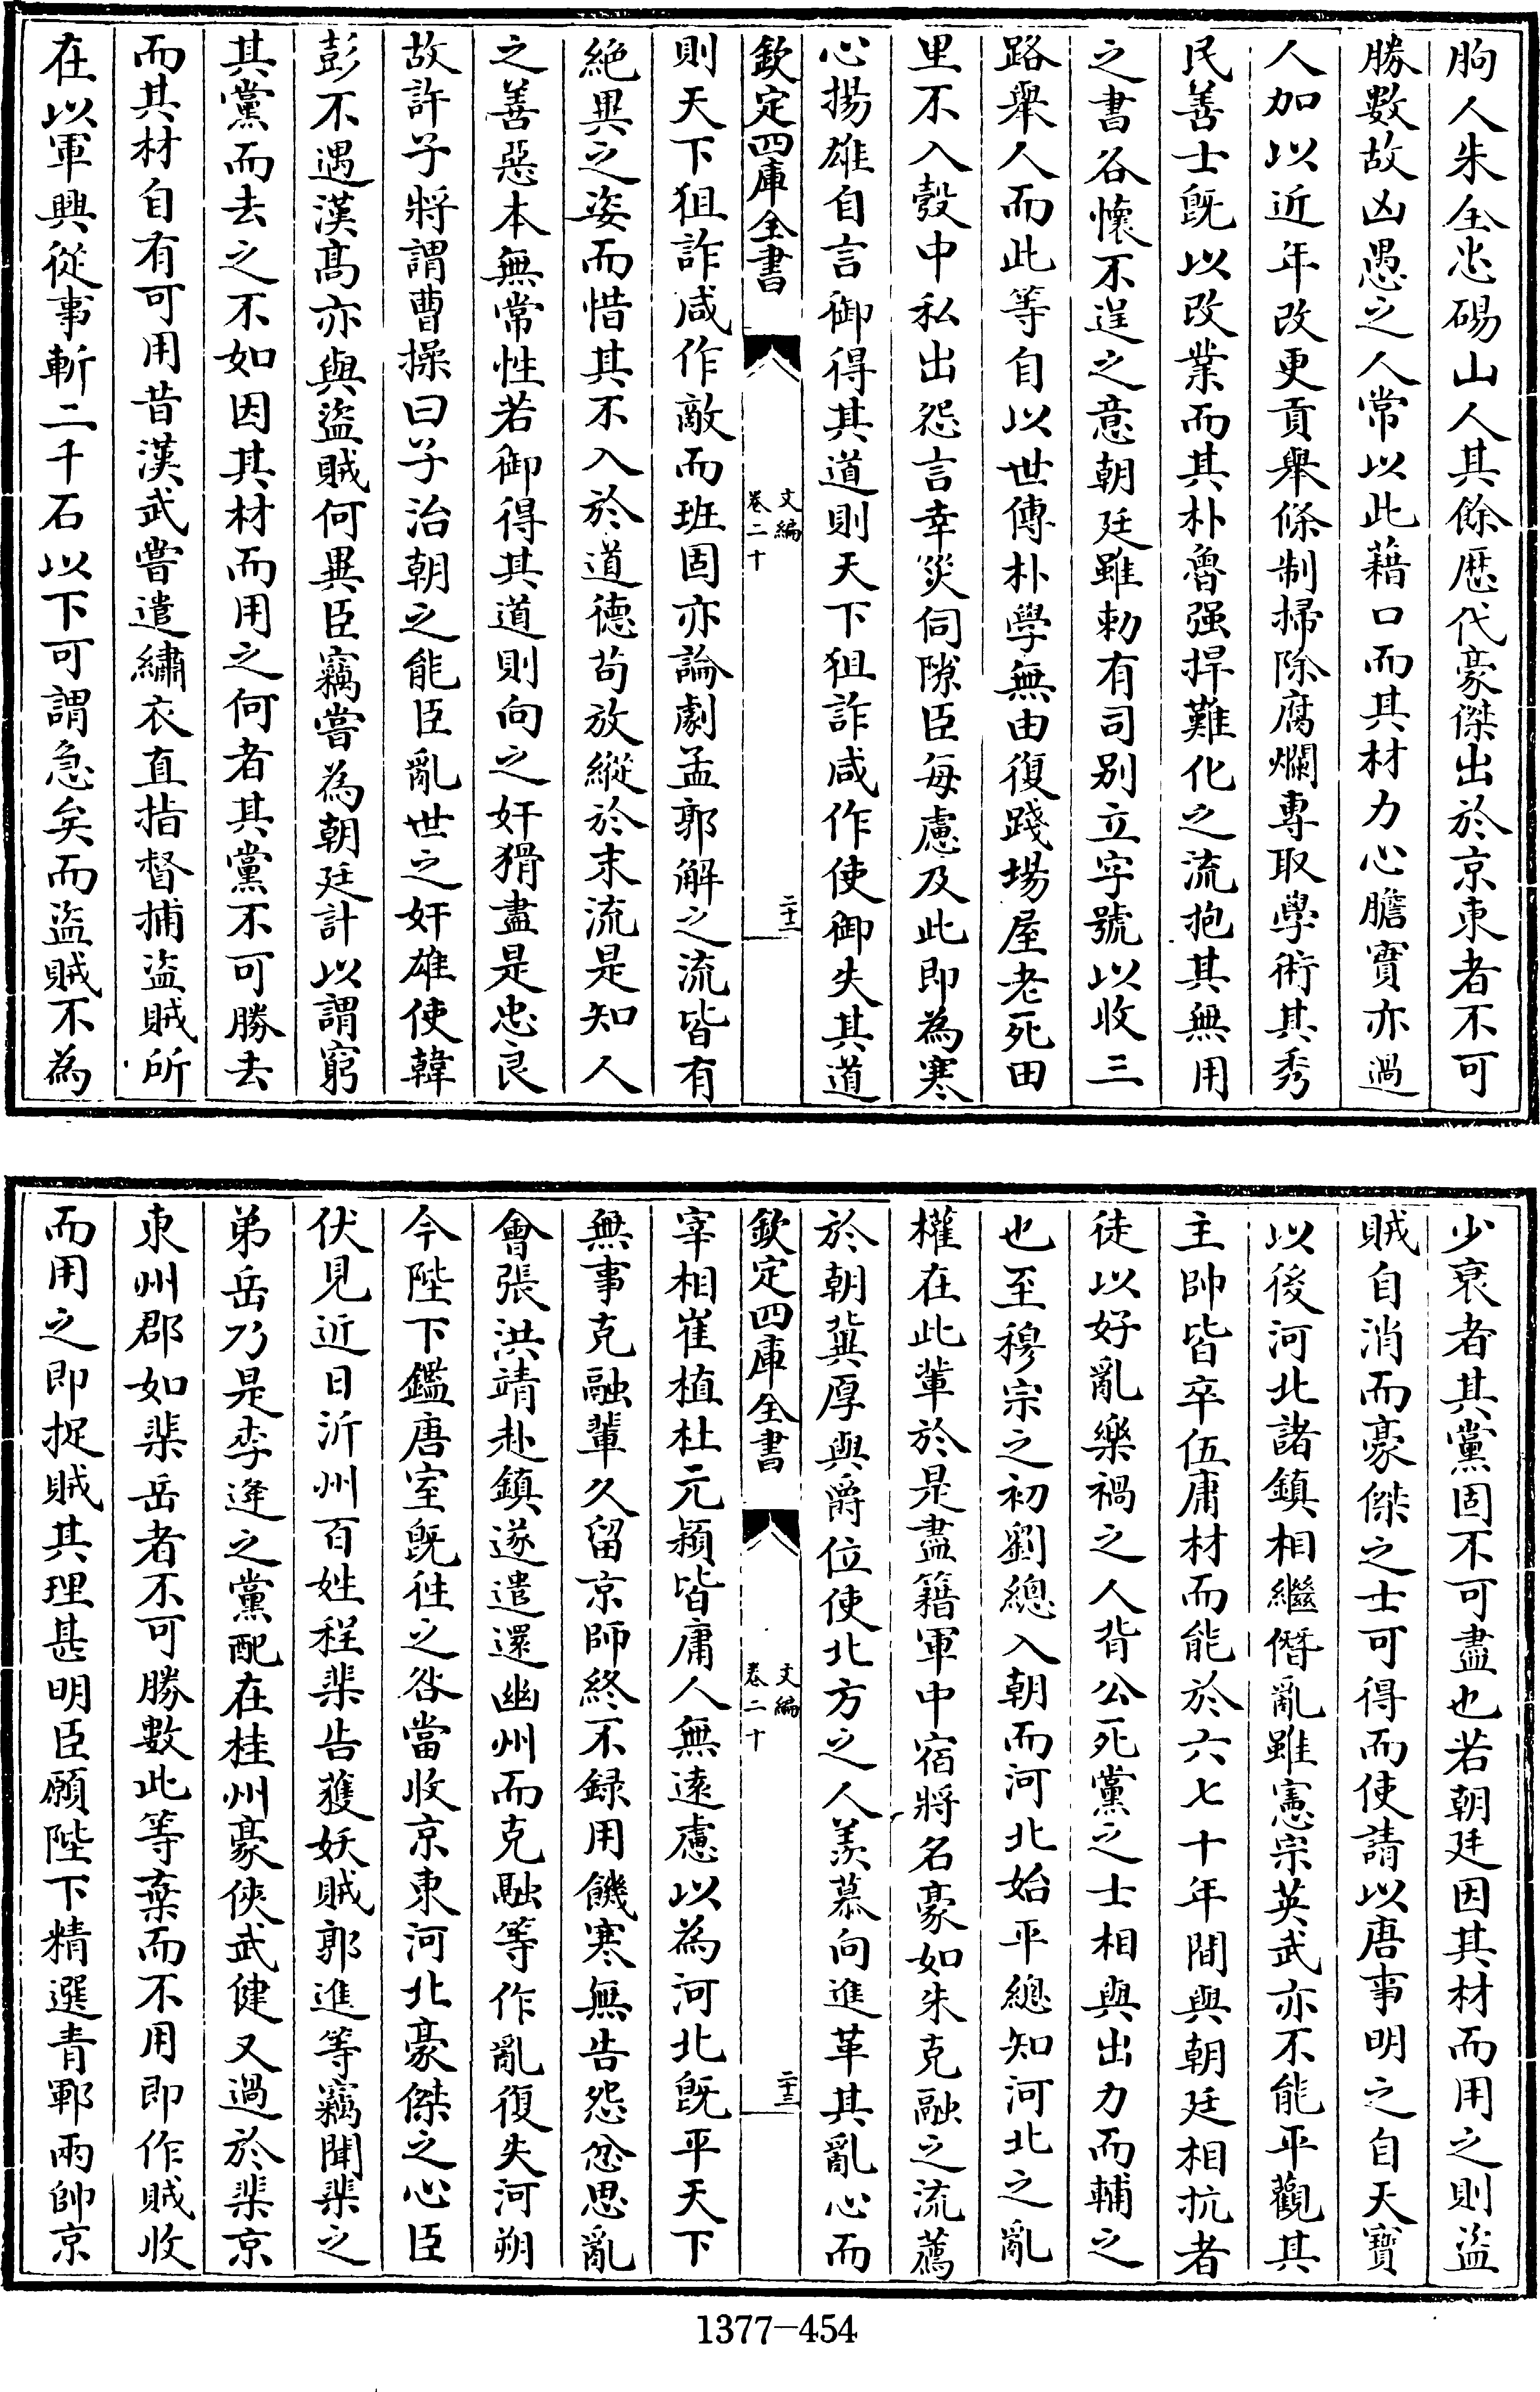 朐人朱全忠碭山人其餘歴代豪傑出於京東者不可
勝數故凶愚之人常以此藉口而其材力心膽實亦過
人加以近年改更貢舉條制掃除腐爛專取學術其秀
民善士既以改業而其朴魯强捍難化之流抱其無用
之書各懷不逞之意朝廷雖勅有司别立字號以收三
路舉人而此等自以世傳朴學無由復踐場屋老死田
里不入彀中私出怨言幸災伺隙臣每慮及此即為寒
心揚雄自言御得其道則天下狙詐咸作使御失其道
欽定四庫全書
文編
卷二十
二十二
則天下狙詐咸作敵而班固亦論劇孟郭解之流皆有
絶異之姿而惜其不入於道德茍放縱於末流是知人
之善惡本無常性若御得其道則向之奸猾盡是忠良
故許子將謂曹操曰子治朝之能臣亂世之奸雄使韓
彭不遇漢髙亦與盜賊何異臣竊嘗為朝廷計以謂窮
其黨而去之不如因其材而用之何者其黨不可勝去
而其材自有可用昔漢武嘗遣繡衣直指督捕盜賊所
在以軍興從事斬二千石以下可謂急矣而盜賊不為
少衰者其黨固不可盡也若朝廷因其材而用之則盜
賊自消而豪傑之士可得而使請以唐事明之自天寳
以後河北諸鎮相繼僭亂雖憲宗英武亦不能平觀其
主帥皆卒伍庸材而能於六七十年間與朝廷相抗者
徒以好亂樂禍之人背公死黨之士相與出力而輔之
也至穆宗之初劉總入朝而河北始平總知河北之亂
權在此輩於是盡籍軍中宿將名豪如朱克融之流薦
於朝冀厚與爵位使北方之人羡慕向進革其亂心而
欽定四庫全書
文編
卷二十
二十三
宰相崔植杜元穎皆庸人無逺慮以為河北既平天下
無事克融輩久留京師終不録用饑寒無告怨忿思亂
㑹張洪靖赴鎮遂遣還幽州而克融等作亂復失河朔
今陛下鑑唐室既徃之咎當收京東河北豪傑之心臣
伏見近日沂州百姓程棐告獲妖賊郭進等竊聞棐之
弟岳乃是李逄之黨配在桂州豪俠武健又過於棐京
東州郡如棐岳者不可勝數此等棄而不用即作賊收
而用之即捉賊其理甚明臣願陛下精選青鄆兩帥京
1377-454